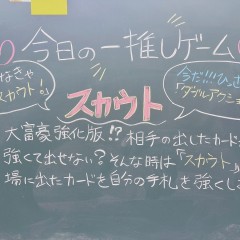 今日の一推しゲーム
なきゃ
スカウト。
今だ!!!ひっさ
「ダブルアクショ
スカウト
大富豪強化版!?相手の出したカード
強くて出せない?そんな時は「スカウト」
場に出たカードを自分の手札を強くし